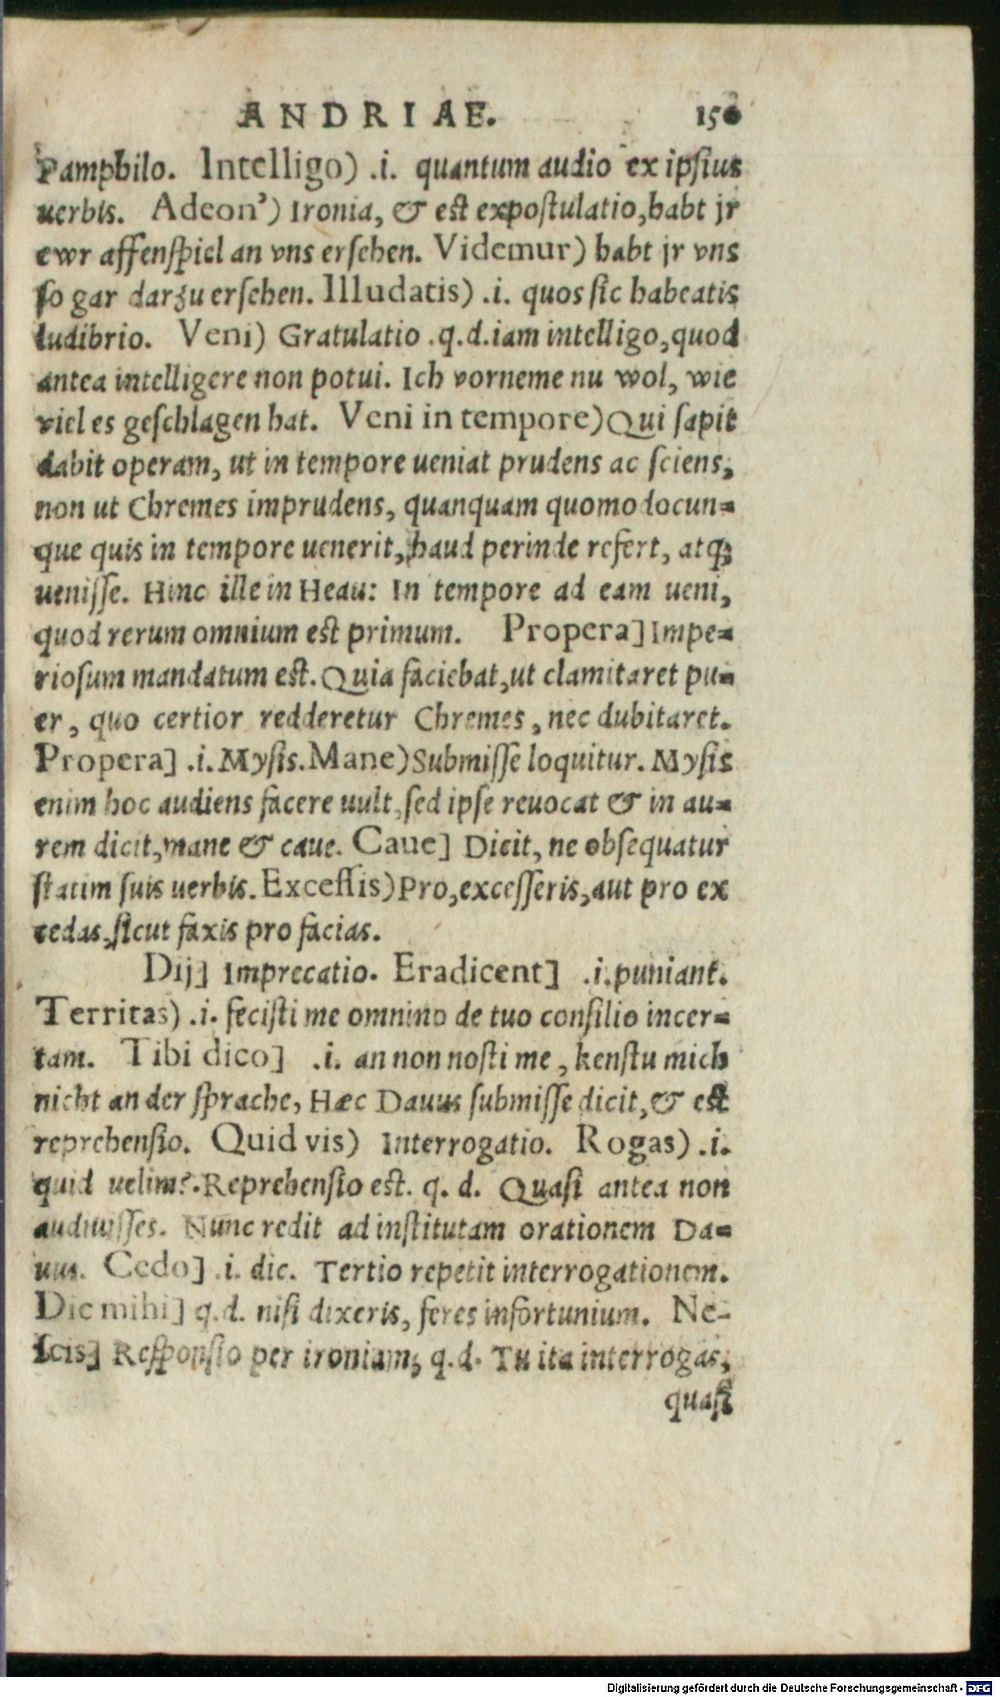 ANDRIAE. 150
Pamphilo. Intelligo) .i. quantum audio ex ipsius
uerbis. Adeon') Ironia, & est expostulatio, habt jr
ewr affenspiel an vns ersehen. Videmur) habt jr vns
so gar darzu ersehen. Illudatis) .i. quos sic habeatis
ludibrio. Veni) Gratulatio .q.d. iam intelligo, quod
antea intelligere non potui. Ich vorneme nu wol, wie
viel es geschlagen hat. Veni in tempore) Qui sapit
dabit operam, ut in tempore ueniat prudens ac sciens,
non ut Chremes imprudens, quanquam quomodocun=
que quis in tempore uenerit, haud perinde refert, atq;
uenisse. Hinc ille in Heau: In tempore ad eam ueni,
quod rerum omnium est primum. Propera] Impe=
riosum mandatum est. Quia faciebat, ut clamitaret pu=
er, quo certior redderetur Chremes, nec dubitaret.
Propera] .i. Mysis. Mane) Submisse loquitur. Mysis
enim hoc audiens facere uult, sed ipse reuocat & in au=
rem dicit, mane & caue. Caue] Dicit, ne obsequatur
statim suis uerbis. Excessis) Pro, excesseris, aut pro ex
cedas, sicut faxis pro facias.
Dij] Imprecatio. Eradicent] .i. puniant.
Territas) .i. fecisti me omnino de tuo consilio incer=
tam. Tibi dico] .i. an non nosti me, kenstu mich
nicht an der sprache, Hæc Dauus submisse dicit, & est
reprehensio. Quid vis) Interrogatio. Rogas) .i.
quid uelim?. Reprehensio est. q. d. Quasi antea non
audiuisses. Nunc redit ad institutam orationem Da=
uus. Cedo] .i. dic. Tertio repetit interrogationem.
Dic mihi] q.d. nisi dixeris, feres infortunium. Ne-
scis] Responsio per ironiam; q.d. Tu ita interrogas,
quasi
Digitalisierung gefördert durch die Deutsche Forschungsgemeinschaft - DFG